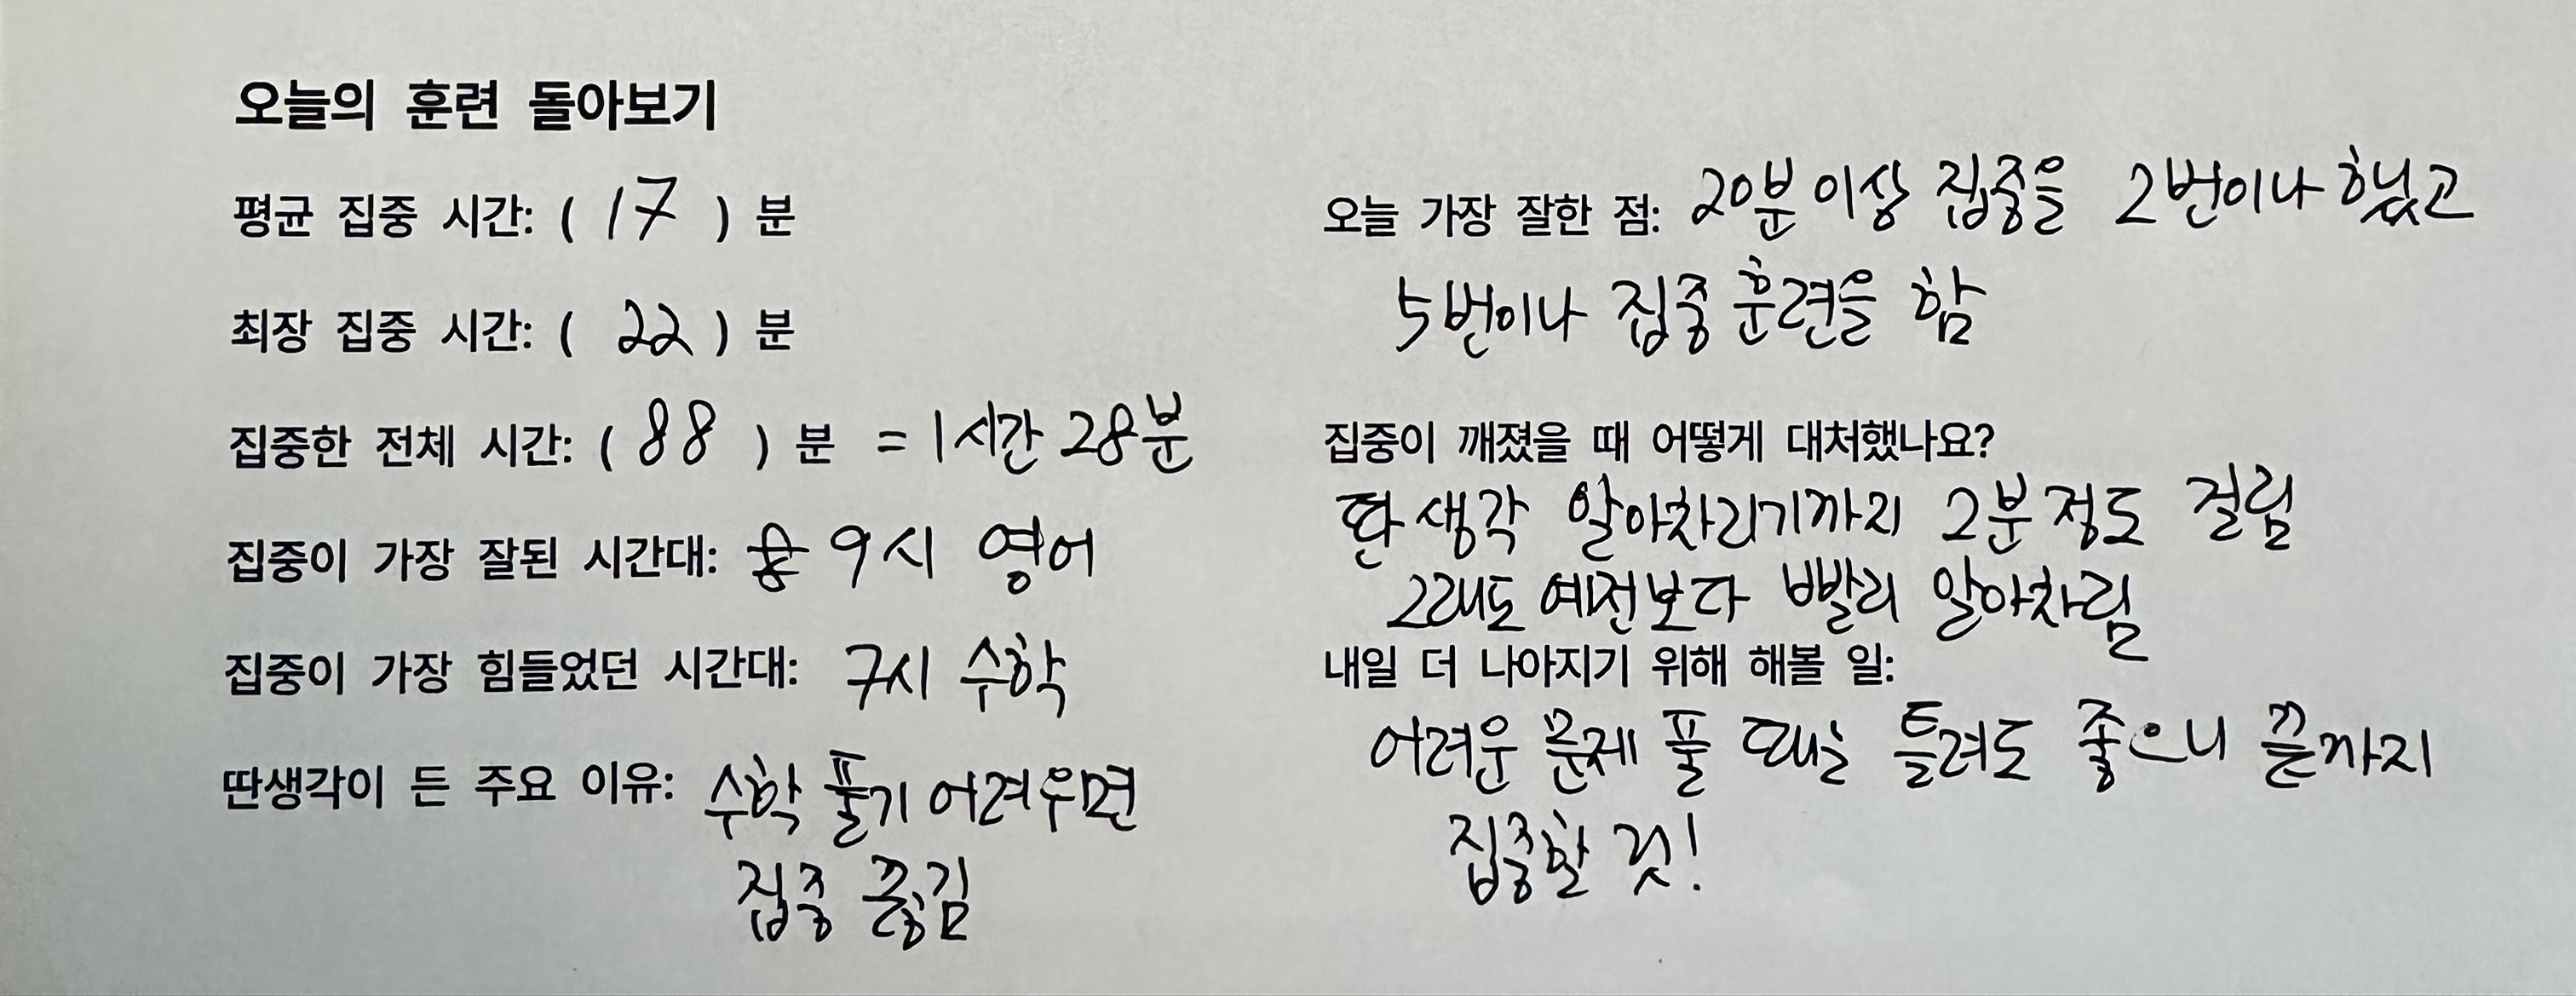 오늘의 훈련 돌아보기
평균 집중 시간: ( 17 ) 분
최장 집중 시간: ( 22 ) 분
집중한 전체 시간: ( 88 ) 분 = 1시간 28분
집중이 가장 잘된 시간대: 9시 영어
집중이 가장 힘들었던 시간대: 7시 수학
딴생각이 든 주요 이유: 수학 풀기 어려우면
집중 끊김
오늘 가장 잘한 점: 20분 이상 집중을 2번이나 했고
5번이나 집중 훈련을 함
집중이 깨졌을 때 어떻게 대처했나요?
딴 생각 알아차리기까지 2분 정도 걸림
그래도 예전보다 빨리 알아차림
내일 더 나아지기 위해 해볼 일:
어려운 문제 풀 때는 틀려도 좋으니 끝까지
집중할 것!